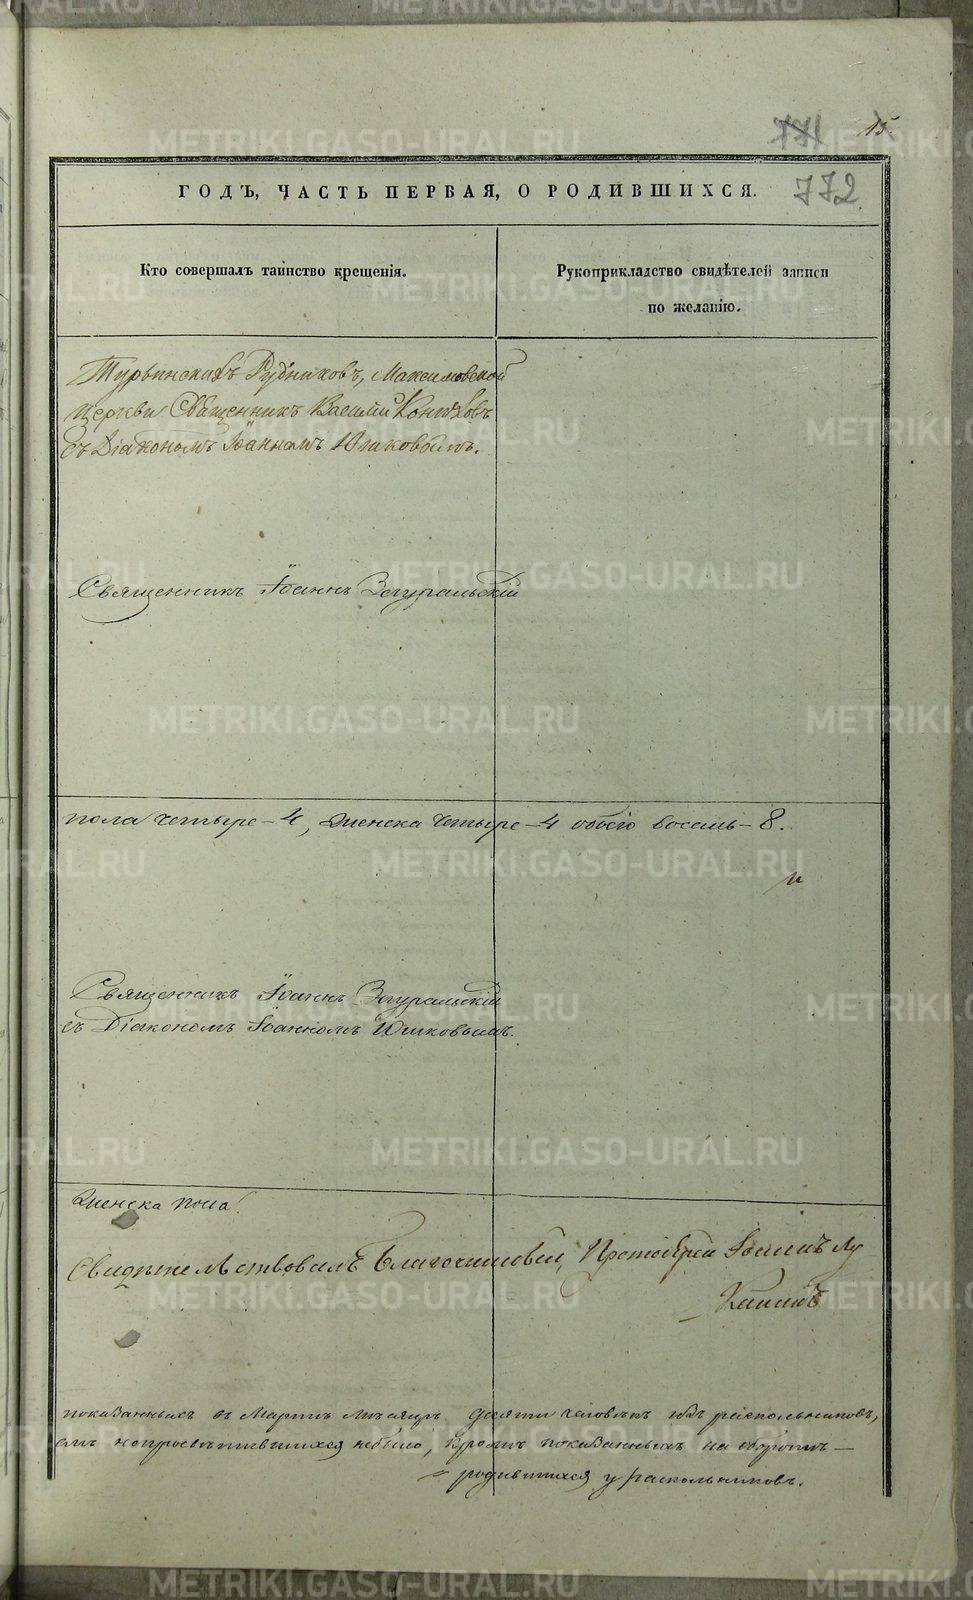 771 15.
772
ГОДЪ, ЧАСТЬ ПЕРВАЯ, О РОДИВШИХСЯ.
Кто совершалъ таинство крещенія.
Рукоприкладство свидѣтелей записи
по желанію.
Турьинскихъ Рудниковъ, Максимовской
церкви Священникъ Василій Конюховъ
съ Діакономъ Іоанномъ Юшковымъ.
Священникъ Іоаннъ Зауральскій
пола четыре – 4, женска четыре – 4 обоего восемь – 8.
Священникъ Іоаннъ Зауральскій
съ Діакономъ Іоанномъ Юшковымъ.
женска пола.
Свидѣтельствовалъ Благочинный, Протоіерей Іоаннъ Лу
канинъ
показанныхъ въ Мартѣ мѣсяцѣ десяти человѣкъ изъ раскольниковъ,
не было, кромѣ показанныхъ на оборотѣ –
родившихся у раскольниковъ.
METRIKI.GASO-URAL.RU